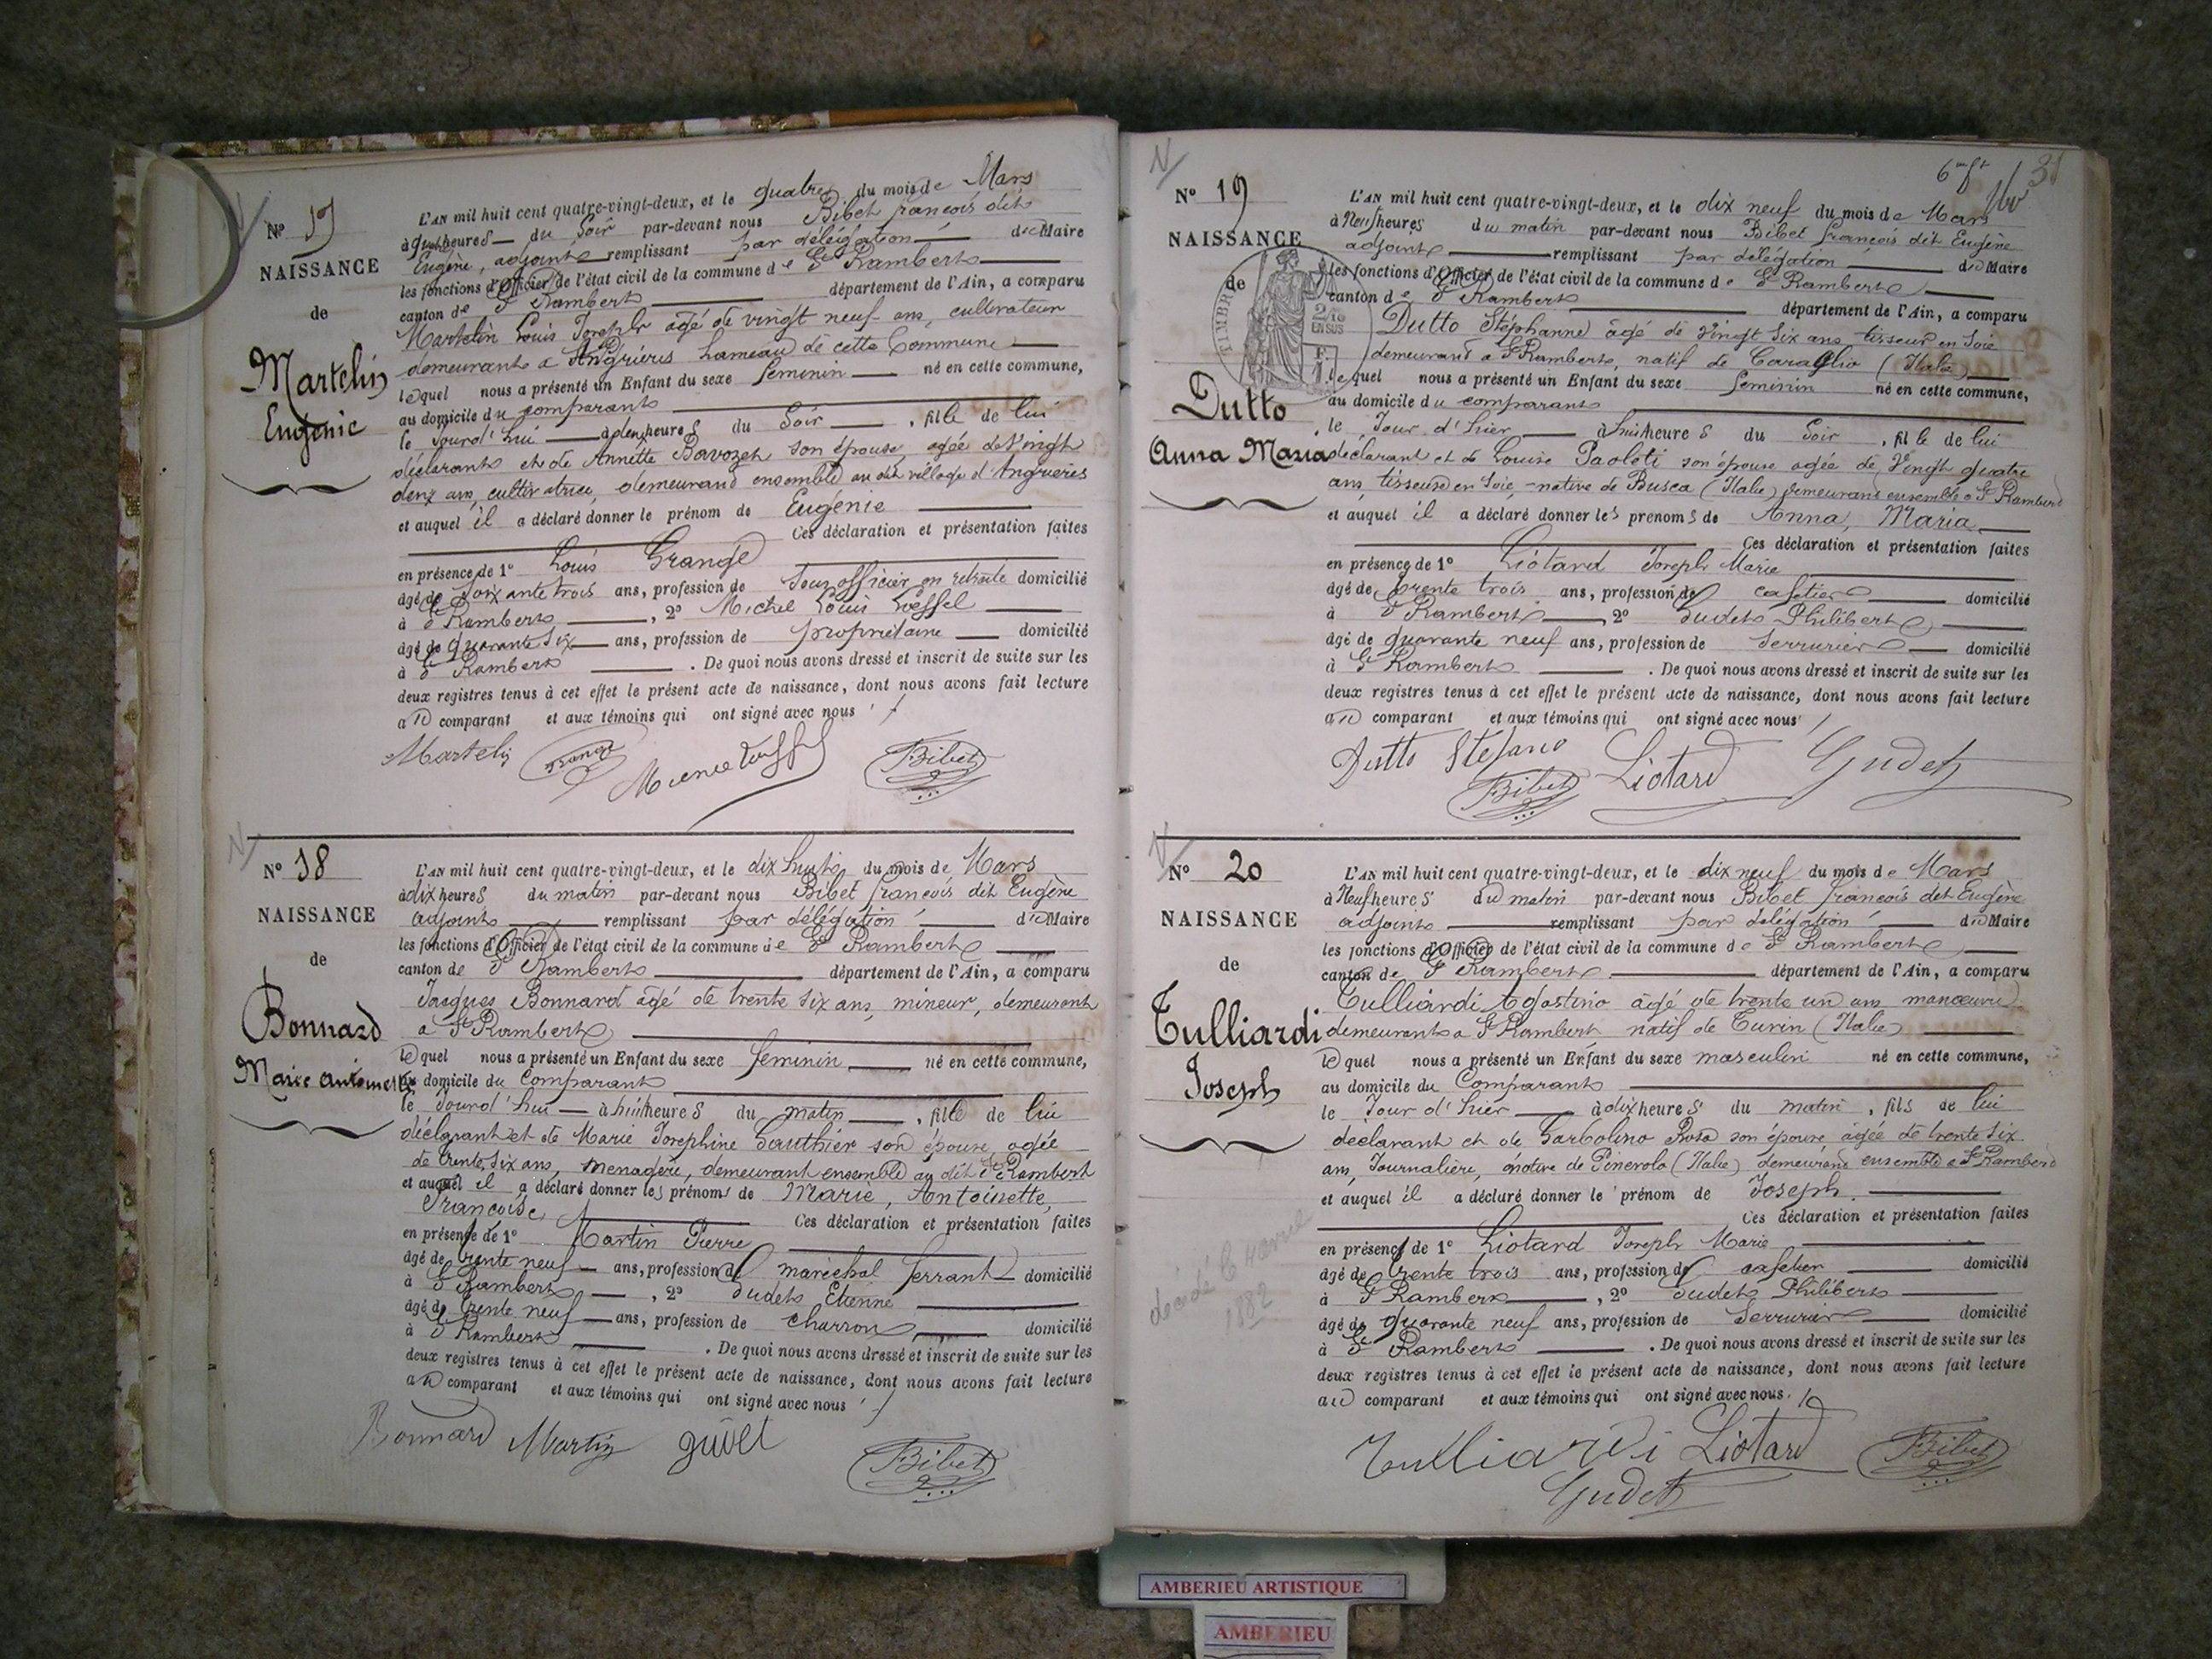 N° 17
NAISSANCE
de
Martelin
Eugénie
L'AN mil huit cent quatre-vingt-deux, et le quatre du mois de Mars
à quatre heures du Soir par-devant nous Bibet françois dit
Eugène, adjoint remplissant par délégation du Maire
les fonctions d'Officier de l'état civil de la commune de St Rambert
canton de St Rambert département de l'Ain, a comparu
Martelin Louis Joseph âgé de vingt neuf ans, cultivateur
demeurant à Angrières hameau de cette Commune
lequel nous a présenté un Enfant du sexe féminin né en cette commune,
au domicile du comparant
le Jourd'hui à deux heures du Soir, fille de lui
déclarant et de Annette Bavozet son épouse, agée de Vingt
deux ans, cultivatrice, demeurant ensemble au dit village d'Angrières
et auquel il a déclaré donner le prénom de Eugénie
Ces déclaration et présentation faites
en présence de 1° Louis Grange
âgé de soixante trois ans, profession de Sous officier en retraite domicilié
à St Rambert, 2° Michel Louis Loeffel
âgé de quarante six ans, profession de propriétaire domicilié
à St Rambert. De quoi nous avons dressé et inscrit de suite sur les
deux registres tenus à cet effet le présent acte de naissance, dont nous avons fait lecture
au comparant et aux témoins qui ont signé avec nous
Martelin Grange Bibet
N° 18
NAISSANCE
de
Bonnard
Marie Antoinette
L'AN mil huit cent quatre-vingt-deux, et le dix huit du mois de Mars
à dix heures du matin par-devant nous Bibet françois dit Eugène
adjoint remplissant par délégation du Maire
les fonctions d'Officier de l'état civil de la commune de St Rambert
canton de St Rambert département de l'Ain, a comparu
Jacques Bonnard âgé de trente six ans, mineur, demeurant
à St Rambert
lequel nous a présenté un Enfant du sexe féminin né en cette commune,
au domicile du Comparant
le Jourd'hui à huit heures du matin, fille de lui
déclarant et de Marie Joséphine Gauthier son épouse, agée
de trente six ans, menagère, demeurant ensemble au dit St Rambert
et auquel il a déclaré donner les prénoms de Marie, Antoinette,
Françoise,
Ces déclaration et présentation faites
en présence de 1° Martin Pierre
âgé de trente neuf ans, profession de maréchal ferrant domicilié
à St Rambert, 2° Gudet Etienne
âgé de trente neuf ans, profession de charron domicilié
à St Rambert. De quoi nous avons dressé et inscrit de suite sur les
deux registres tenus à cet effet le présent acte de naissance, dont nous avons fait lecture
au comparant et aux témoins qui ont signé avec nous
Bonnard Martin Bibet
31
N° 19
NAISSANCE
de
Dutto
Anna Maria
L'AN mil huit cent quatre-vingt-deux, et le dix neuf du mois de Mars
à Neuf heures du matin par-devant nous Bibet françois dit Eugène
adjoint remplissant par délégation du Maire
les fonctions d'Officier de l'état civil de la commune de St Rambert
canton de St Rambert département de l'Ain, a comparu
Dutto Stéphanne âgé de Vingt Six ans tisseur en Soie
demeurant à St Rambert, natif de Caraglio (Italie)
lequel nous a présenté un Enfant du sexe féminin né en cette commune,
au domicile du comparant
le Jour d'hier à huit heures du Soir, fille de lui
déclarant et de Louise Paoleti son épouse agée de Vingt quatre
ans, tisseuse en Soie, native de Busca (Italie) demeurant ensemble à St Rambert
et auquel il a déclaré donner les prenoms de Anna, Maria
Ces déclaration et présentation faites
en présence de 1° Liotard Joseph Marie
âgé de trente trois ans, profession de cafetier domicilié
à St Rambert, 2° Gudet Philibert
âgé de quarante neuf ans, profession de Serrurier domicilié
à St Rambert. De quoi nous avons dressé et inscrit de suite sur les
deux registres tenus à cet effet le présent acte de naissance, dont nous avons fait lecture
au comparant et aux témoins qui ont signé avec nous
Dutto Stefano Liotard Gudet
Bibet
N° 20
NAISSANCE
de
Tulliardi
Joseph
L'AN mil huit cent quatre-vingt-deux, et le dix neuf du mois de Mars
à Neuf heures du matin par-devant nous Bibet françois dit Eugène
adjoint remplissant par délégation du Maire
les fonctions d'Officier de l'état civil de la commune de St Rambert
canton de St Rambert département de l'Ain, a comparu
Tulliardi Agostino âgé de trente un ans manoeuvre
demeurant à St Rambert natif de Turin (Italie)
lequel nous a présenté un Enfant du sexe masculin né en cette commune,
au domicile du Comparant
le Jour d'hier à dix heures du matin, fils de lui
déclarant et de Garbolino Rosa son épouse âgée de trente Six
ans, Journalière, native de Pinerolo (Italie) demeurant ensemble à St Rambert
et auquel il a déclaré donner le prénom de Joseph.
Ces déclaration et présentation faites
en présence de 1° Liotard Joseph Marie
âgé de trente trois ans, profession de cafetier domicilié
à St Rambert, 2° Gudet Philibert
âgé de quarante neuf ans, profession de Serrurier domicilié
à St Rambert. De quoi nous avons dressé et inscrit de suite sur les
deux registres tenus à cet effet le présent acte de naissance, dont nous avons fait lecture
au comparant et aux témoins qui ont signé avec nous.
Tulliardi Liotard Bibet
Gudet
1882
AMBERIEU ARTISTIQUE
AMBERIEU